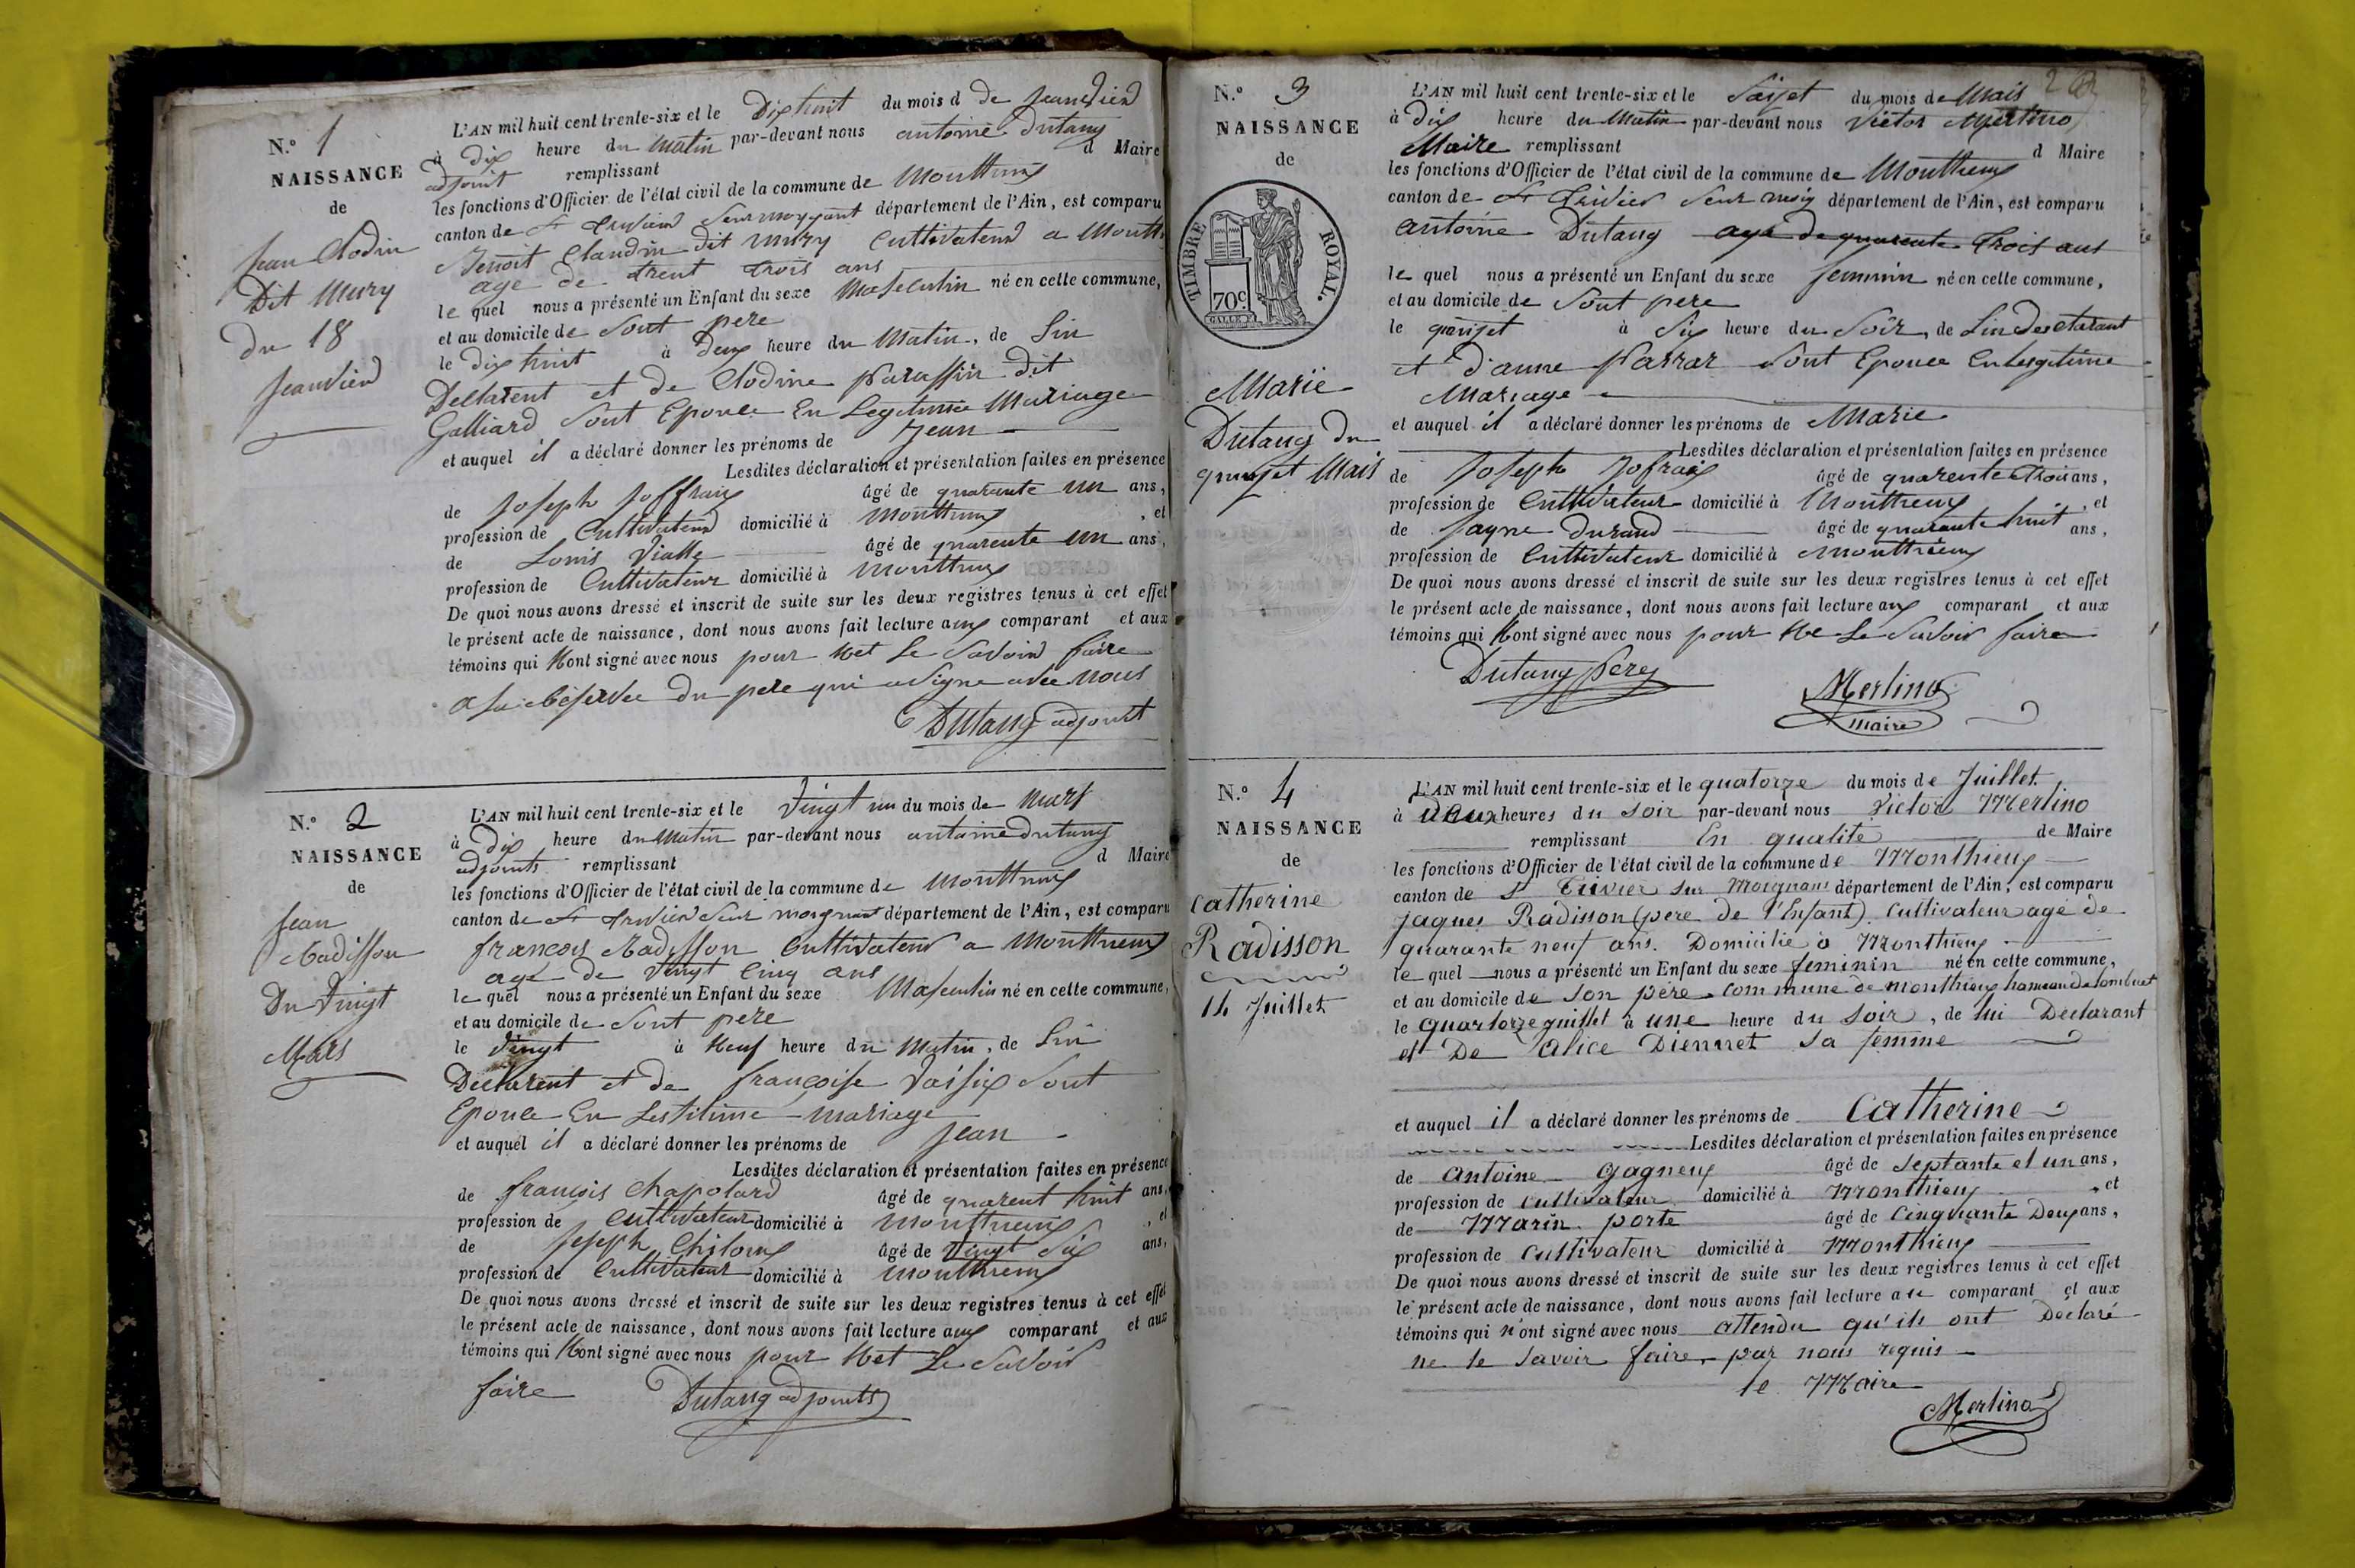 N.º 1
NAISSANCE
de
Jean Clodin
Dit Mury
du 18
Jeanvied
L'AN mil huit cent trente-six et le Dixhuit du mois d de Jeanvied
à Dix heure du Matin par-devant nous antoine Dutang
adjoint remplissant d Maire
les fonctions d'Officier de l'état civil de la commune de Monttieux
canton de St département de l'Ain, est comparu
Benoit Claudin dit Mury Cultivateur a Montt
age de trent trois ans
le quel nous a présenté un Enfant du sexe né en cette commune,
et au domicile de Sont pere
le dix huit à Deux heure du Matin, de Lui
Declarent et de Clodine dit
Galliard Sont Epouse En Mariage
et auquel il a déclaré donner les prénoms de Jean
Lesdites déclaration et présentation faites en présence
de Joseph Joffray âgé de quarante un ans,
profession de Cultivateur domicilié à , et
de Louis Vialle âgé de quarente un ans,
profession de Cultivateur domicilié à
De quoi nous avons dressé et inscrit de suite sur les deux registres tenus à cet effet
le présent acte de naissance, dont nous avons fait lecture aux comparant et aux
témoins qui Nont signé avec nous pour Net Le Savoir faire
a la du pere qui a Signe avec nous
Dutang adjoint
N.º 2
NAISSANCE
de
Jean
Radisson
Du Vingt
Mars
L'AN mil huit cent trente-six et le Vingt un du mois de Mars
à Dix heure du Matin par-devant nous antoine Dutang
adjoints remplissant d Maire
les fonctions d'Officier de l'état civil de la commune de
canton de St département de l'Ain, est comparu
francois Radisson Cultivateur a
age de Vingt Cinq ans
le quel nous a présenté un Enfant du sexe né en cette commune,
et au domicile de Sont pere
le Vingt à Neuf heure du Matin, de Lui
Declarent et de françoise Sont
Epouse En mariage
et auquel il a déclaré donner les prénoms de Jean
Lesdites déclaration et présentation faites en présence
de francois Chapolard âgé de quarent huit ans,
profession de Cultivateur domicilié à , et
de Joseph âgé de Vingt Six ans,
profession de Cultivateur domicilié à
De quoi nous avons dressé et inscrit de suite sur les deux registres tenus à cet effet
le présent acte de naissance, dont nous avons fait lecture aux comparant et aux
témoins qui Nont signé avec nous pour Net Le Savoir
faire Dutang adjoints
N.º 3
NAISSANCE
de
TIMBRE ROYAL.
70c
Marie
Dutang du
Mais
L'AN mil huit cent trente-six et le du mois de Mais
à Dix heure du Matin par-devant nous Victor Merlino
Maire remplissant d Maire
les fonctions d'Officier de l'état civil de la commune de Montthieux
canton de St département de l'Ain, est comparu
antoine Dutang age de quarente trois ans
le quel nous a présenté un Enfant du sexe feminin né en cette commune,
et au domicile de Sont pere
le à Six heure du Soir, de Lui
et d'anne Sont Epouse
Mariage
et auquel il a déclaré donner les prénoms de Marie
Lesdites déclaration et présentation faites en présence
de Joseph Jofray âgé de quarente trois ans,
profession de Cultivateur domicilié à Montthieux , et
de Durand âgé de quarante huit ans,
profession de Cultivateur domicilié à
De quoi nous avons dressé et inscrit de suite sur les deux registres tenus à cet effet
le présent acte de naissance, dont nous avons fait lecture aux comparant et aux
témoins qui Nont signé avec nous pour Ne Le Savoir faire
Dutang pere
Merlino
maire
N.º 4
NAISSANCE
de
Catherine
Radisson
14 Juillet
L'AN mil huit cent trente-six et le quatorze du mois de Juillet
à Deux heures du Soir par-devant nous Victor Merlino
remplissant En qualité de Maire
les fonctions d'Officier de l'état civil de la commune de Monthieux
canton de St Trivier sur Moignans département de l'Ain, est comparu
jaques Radisson (pere de l'Enfant) Cultivateur agé de
quarante neuf ans. Domicilié à Monthieux
le quel nous a présenté un Enfant du sexe feminin né en cette commune,
et au domicile de Son pere commune de Monthieux hameau de
le quartorze à une heure du Soir, de lui Declarant
et De Alice sa femme
et auquel il a déclaré donner les prénoms de Catherine
Lesdites déclaration et présentation faites en présence
de Antoine Gagneux âgé de Septante et un ans,
profession de Cultivateur domicilié à Monthieux , et
de Marin porte âgé de Cinquante Deux ans,
profession de Cultivateur domicilié à Monthieux
De quoi nous avons dressé et inscrit de suite sur les deux registres tenus à cet effet
le présent acte de naissance, dont nous avons fait lecture au comparant et aux
témoins qui n'ont signé avec nous attendu qu'ils ont Declaré
ne le savoir faire, par nous requis
le Maire
Merlino